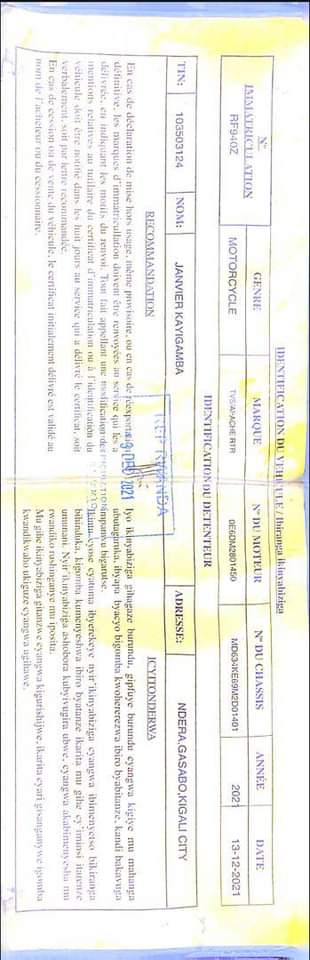 IDENTIFICATION DU VEHICULE / Ibiranga ikinyabiziga
N° IMMATRICULATION GENRE MARQUE N° DU MOTEUR N° DU CHASSIS ANNÉE DATE
RF940Z MOTORCYCLE TVS/APACHE RTR 2021 13-12-2021
IDENTIFICATION DU DETENTEUR
TIN: 103503124 NOM: JANVIER KAYIGAMBA ADRESSE: NDERA,GASABO,KIGALI CITY
RECOMMANDATION
En cas de déclaration de mise hors usage, même provisoire, ou en cas de réexportation
définitive, les marques d'immatriculation doivent être renvoyées au service qui les a
délivrée, en indiquant les motifs du renvoi. Tout fait appellant une modification des
mentions relatives au titulaire du certificat d'immatriculation ou à l'identification du
véhicule doit être notifié dans les huit jours au service qui a délivré le certificat, soit
verbalement, soit par lettre recommandée.
En cas de cession ou de vente du véhicule, le certificat initialement délivré est validé au
nom de l'acheteur ou du cessionnaire.
REP RWANDA
DEC 2021
ICYITONDERWA
Iyo ikinyabiziga gihagaze burundu, gipfuye burundu cyangwa kigiye mu mahanga
ubutagaruka, ibyapa byacyo bigomba kwohererezwa ibiro byabitanze, kandi bakavuga
impamvu bigarutse.
Ikintu cyose cyatuma ibyerekeye nyir'ikinyabiziga cyangwa ibimenyetso bikiranga
bihinduka, kigomba kumenyeshwa ibiro byatanze ikarita mu gihe cy'iminsi itarenze
umunani. Nyir'ikinyabiziga ashobora kubyivugira ubwe, cyangwa akabimenyesha mu
rwandiko rushinganye mu iposita.
Mu gihe ikinyabiziga gitanzwe cyangwa kigurishijwe, ikarita cyari gisanganywe igomba
kwandikwaho ukiguze cyangwa ugihawe.